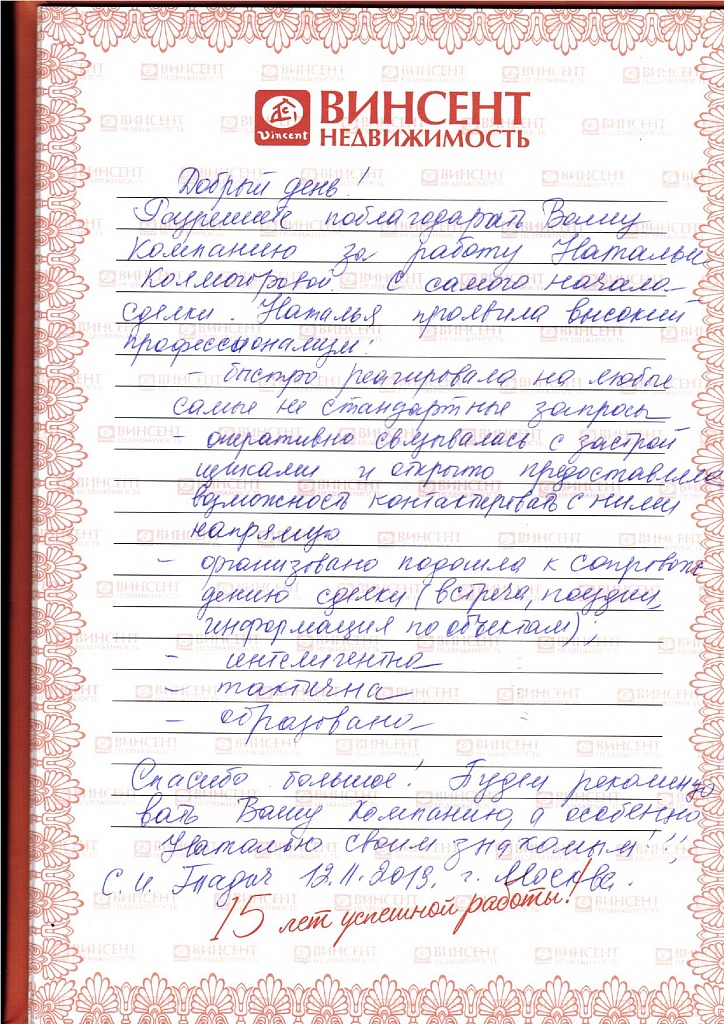 ВИНСЕНТ
НЕДВИЖИМОСТЬ
Vincent
Добрый день!
Разрешите поблагодарить Вашу
компанию за работу Натальи
Колмогоровой. С самого начала
сделки Наталья проявила высокий
профессионализм:
- быстро реагировала на любые
самые не стандартные запросы
- оперативно связывалась с застрой
щиками и открыто предоставляла
возможность контактировать с ними
напрямую
- организовано подошла к сопровож
дению сделки (встреча, поездки,
информация по объектам);
- интелигентна
- тактична
- образована
Спасибо большое! Будем рекомендо
вать Вашу компанию, а особенно
Наталью своим знакомым!!!
С. И. 2019. г. Москва.
15 лет успешной работы!